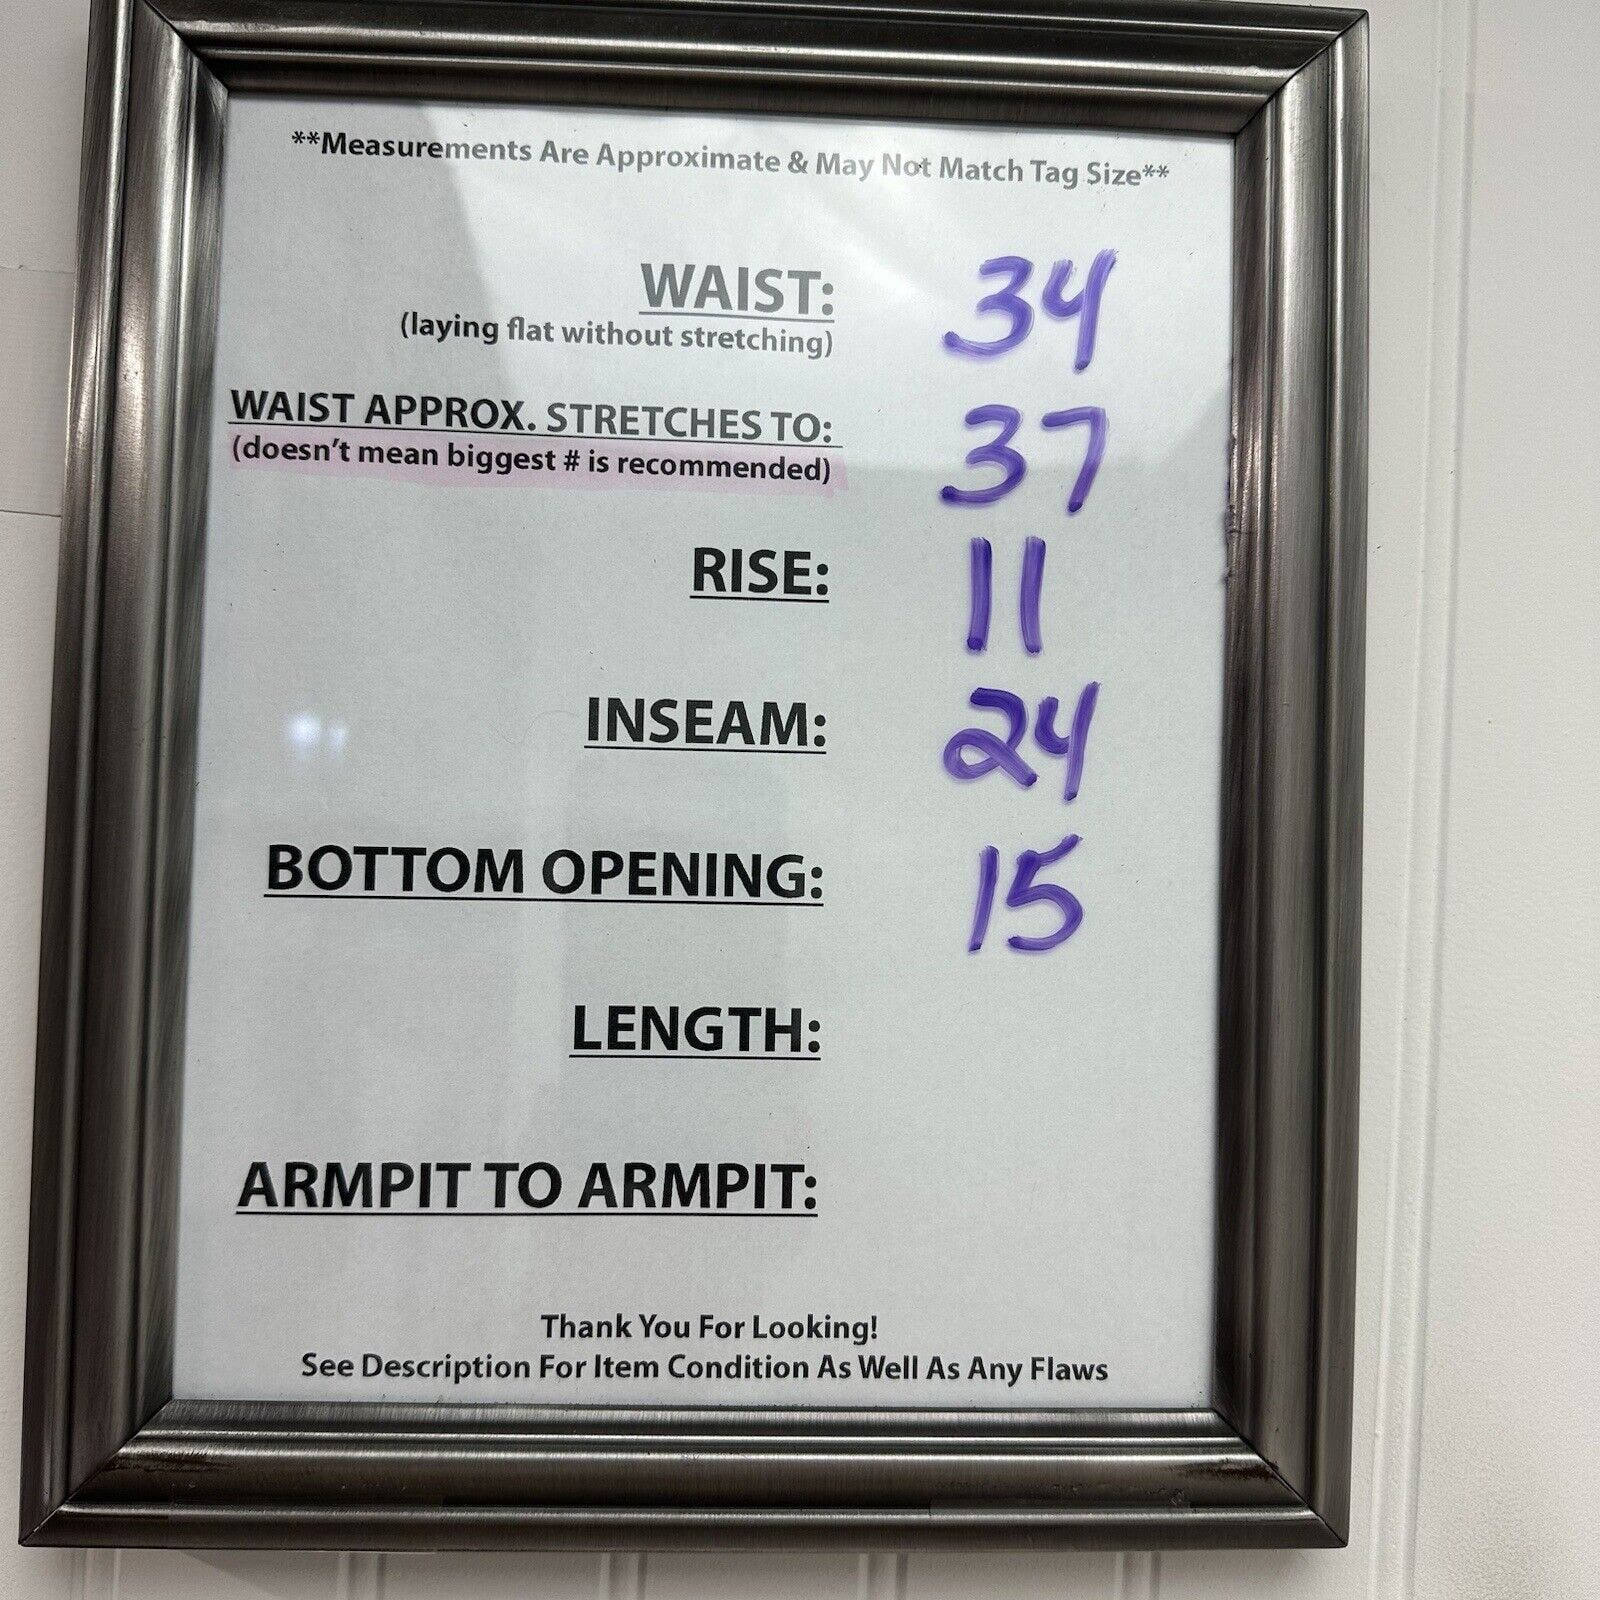 **Measurements Are Approximate & May Not Match Tag Size**
WAIST: 34
(laying flat without stretching)
WAIST APPROX. STRETCHES TO: 37
(doesn't mean biggest # is recommended)
RISE: 11
INSEAM: 24
BOTTOM OPENING: 15
LENGTH:
ARMPIT TO ARMPIT:
Thank You For Looking!
See Description For Item Condition As Well As Any Flaws